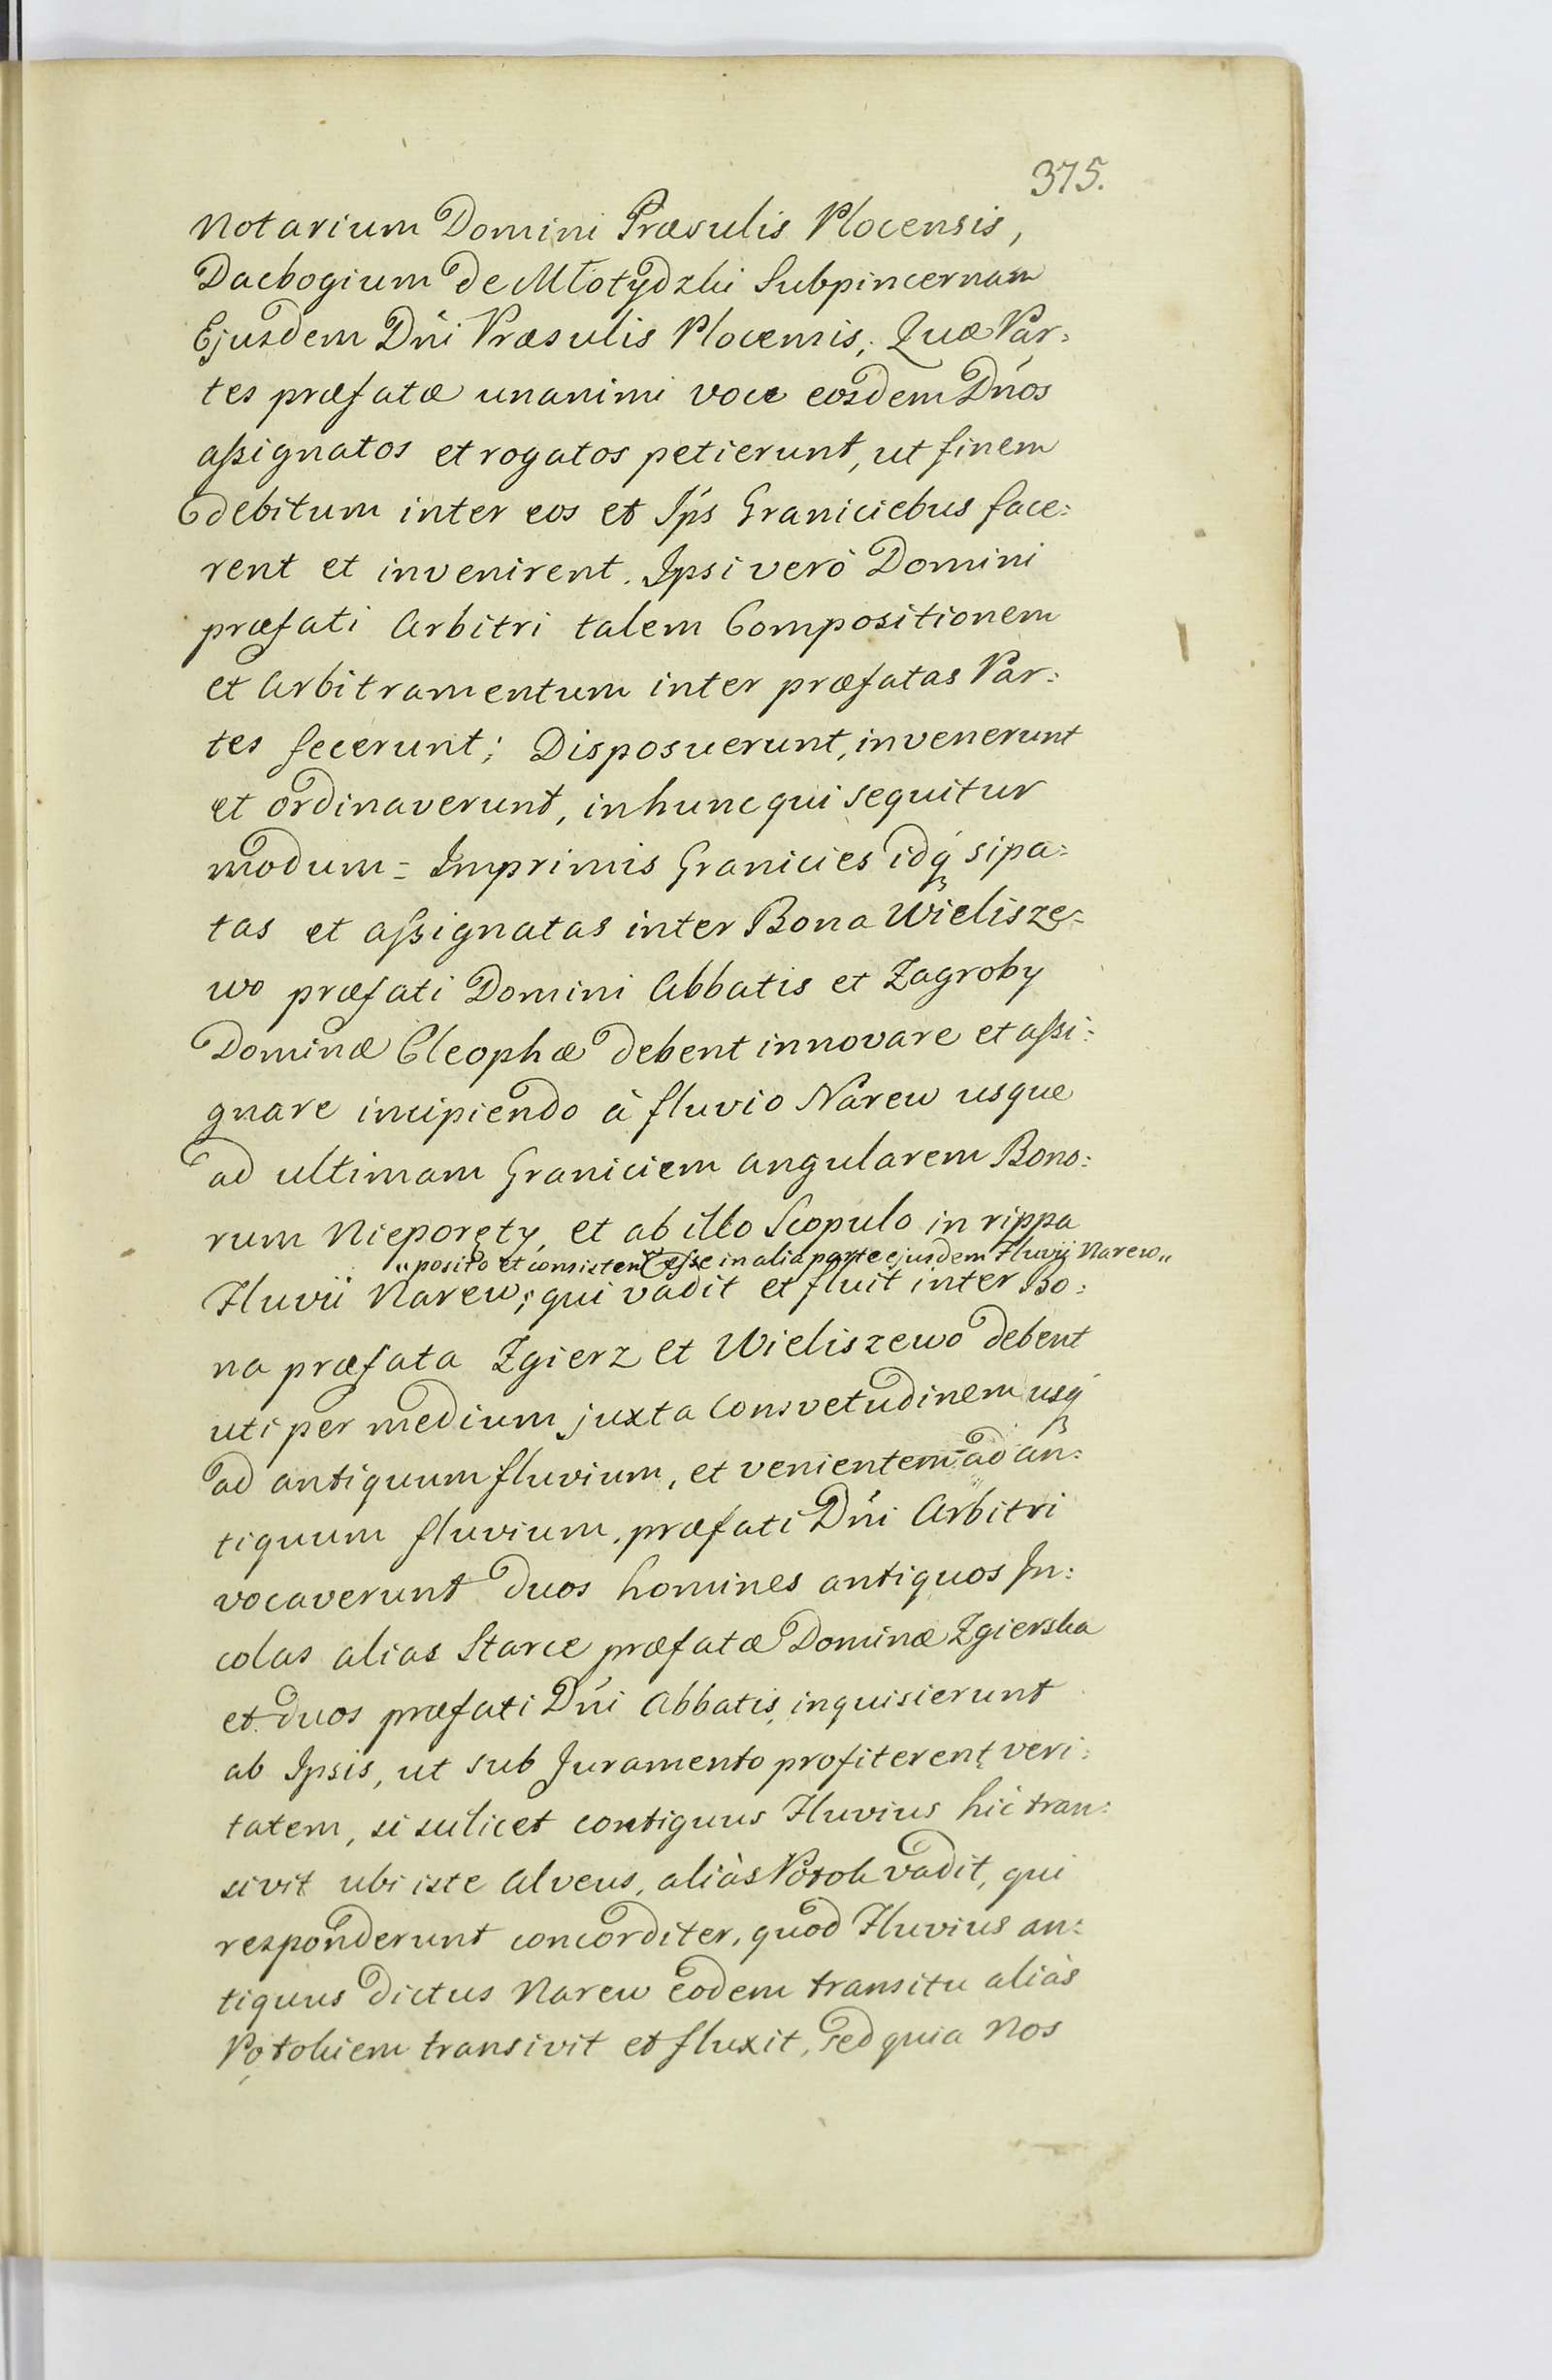 375.
Notarium Domini Præsulis Plocensis,
Dacbogium de Młotydzki Subpincernam
Ejusdem Dńi Præsulis Plocensis, Quæ Par:
tes præfatæ unanimi voce eosdem Dńos
aſsignatos et rogatos petierunt, ut finem
debitum inter eos et Ip̃s Graniciebus face:
rent et invenirent. Ipsi verò Domini
præfati Arbitri talem Compositionem
et Arbitramentum inter præfatas Par:
tes fecerunt; Disposuerunt, invenerunt
et ordinaverunt, in hunc qui sequitur
modum = Imprimis Granicies idq́ sipa:
tas et aſsignatas inter Bona Wielisze:
wo præfati Domini Abbatis et Zagroby
Dominæ Cleophæ debent innovare et aſsi:
gnare incipiendo à fluvio Narew usque
ad ultimam Graniciem angularem Bono:
rum Nieporęty, et ab illo Scopulo in rippa
„posito et consisten̄ eſse in alia parte ejusdem Fluvij Narew„
Fluvii Narew; qui vadit et fluit inter Bo:
na præfata Zgierz et Wieliszewo debent
uti per medium juxta Consvetudinem usq́
ad antiquum fluvium, et venientem ad an:
tiquum fluvium, præfati Dńi Arbitri
vocaverunt duos homines antiquos In:
colas alias Starce præfatæ Dominæ Zgierska
et duos præfati Dńi Abbatis, inquisierunt
ab Ipsis, ut sub Juramento profiterent̨ veri:
tatem, si scilicet contiguus Fluvius hic tran:
sivit ubi iste Alveus, aliàs Potok vadit, qui
responderunt concorditer, quod Fluvius an:
tiquus dictus Narew eodem transitu aliàs
Potokiem transivit et fluxit, sed quia Nos